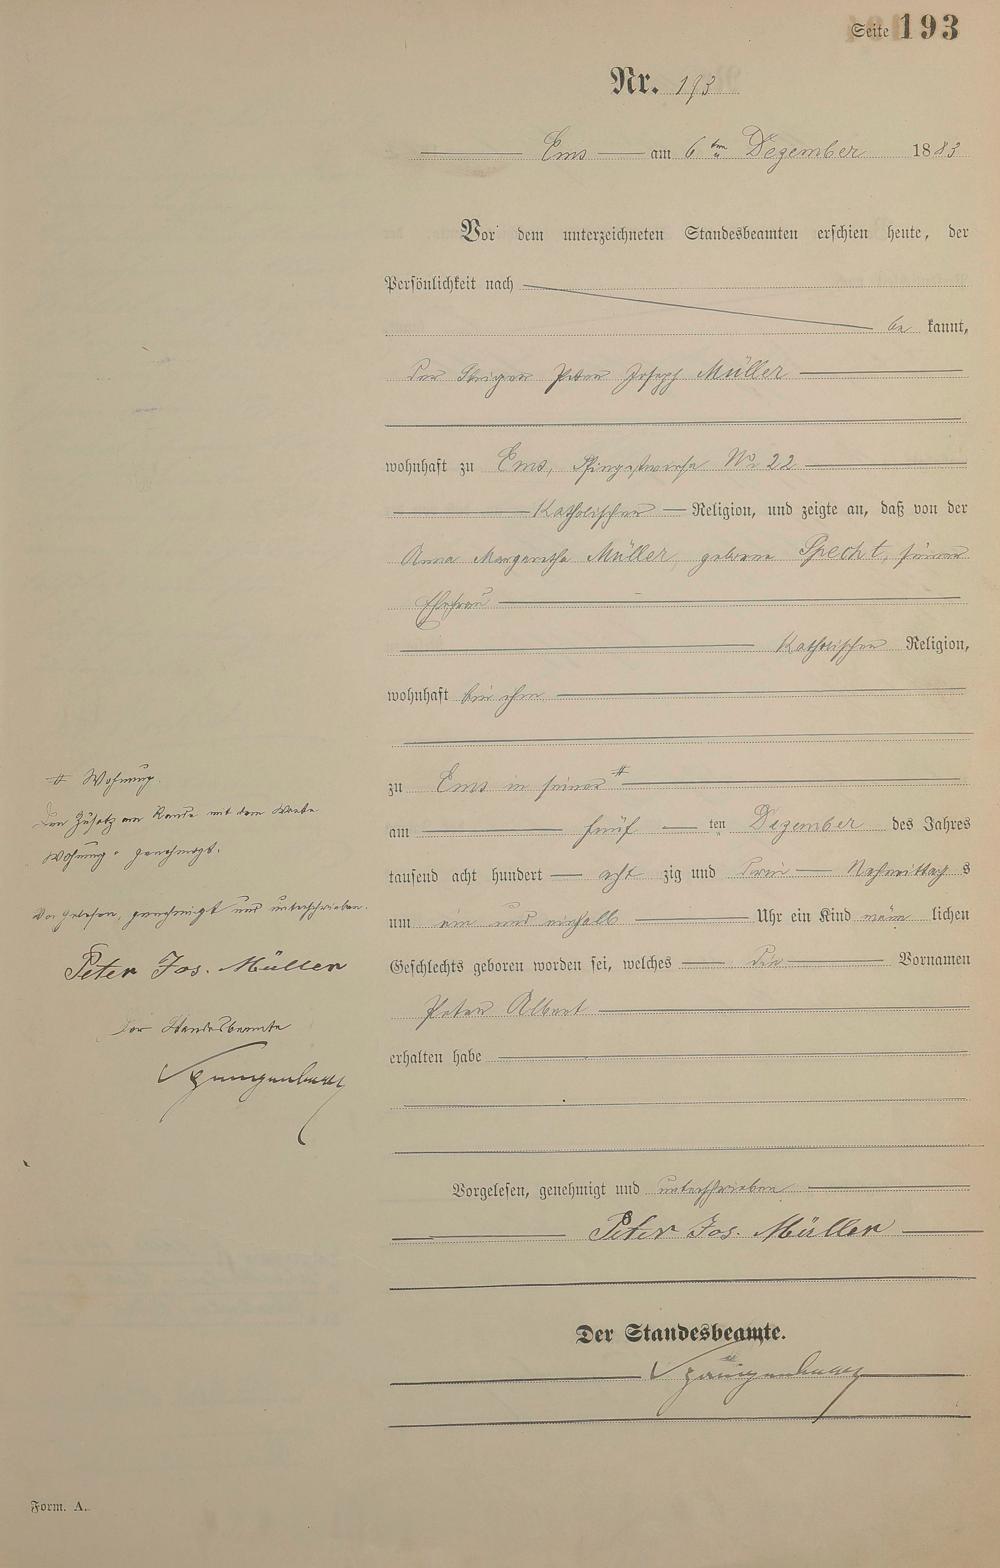 Seite 193
Nr. 193
Ems am 6 ten Dezember 1883
Vor dem unterzeichneten Standesbeamten erschien heute, der
Persönlichkeit nach
be kannt,
der Peter Joseph Müller
wohnhaft zu Ems, Pfingstwiese No 22
katholischer Religion, und zeigte an, daß von der
Anna Margaretha Müller, geborene Specht, seiner
Ehefrau
katholischer Religion,
wohnhaft bei ihm
zu Ems in seiner #
am fünf ten Dezember des Jahres
tausend acht hundert acht zig und drei Nachmittag s
um ein und einhalb Uhr ein Kind männ lichen
Geschlechts geboren worden sei, welches die Vornamen
Peter Albert
erhalten habe
Vorgelesen, genehmigt und unterschrieben
Peter Jos. Müller
Der Standesbeamte.
# Wohnung.
Den Zusatz am Rande mit dem Worte
Wohnung " genehmigt.
Vorgelesen, genehmigt und unterschrieben.
Peter Jos. Müller
Der Standesbeamte
Form. A.